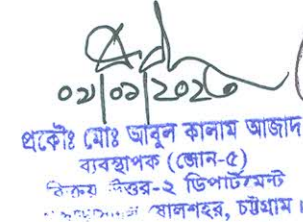 ০২|০৯|২০২০
প্রকৌঃ মোঃ আবুল কালাম আজাদ
ব্যবস্থাপক (জোন-৫)
বিক্রয় উত্তর-২ ডিপার্টমেন্ট
ষোলশহর, চট্টগ্রাম